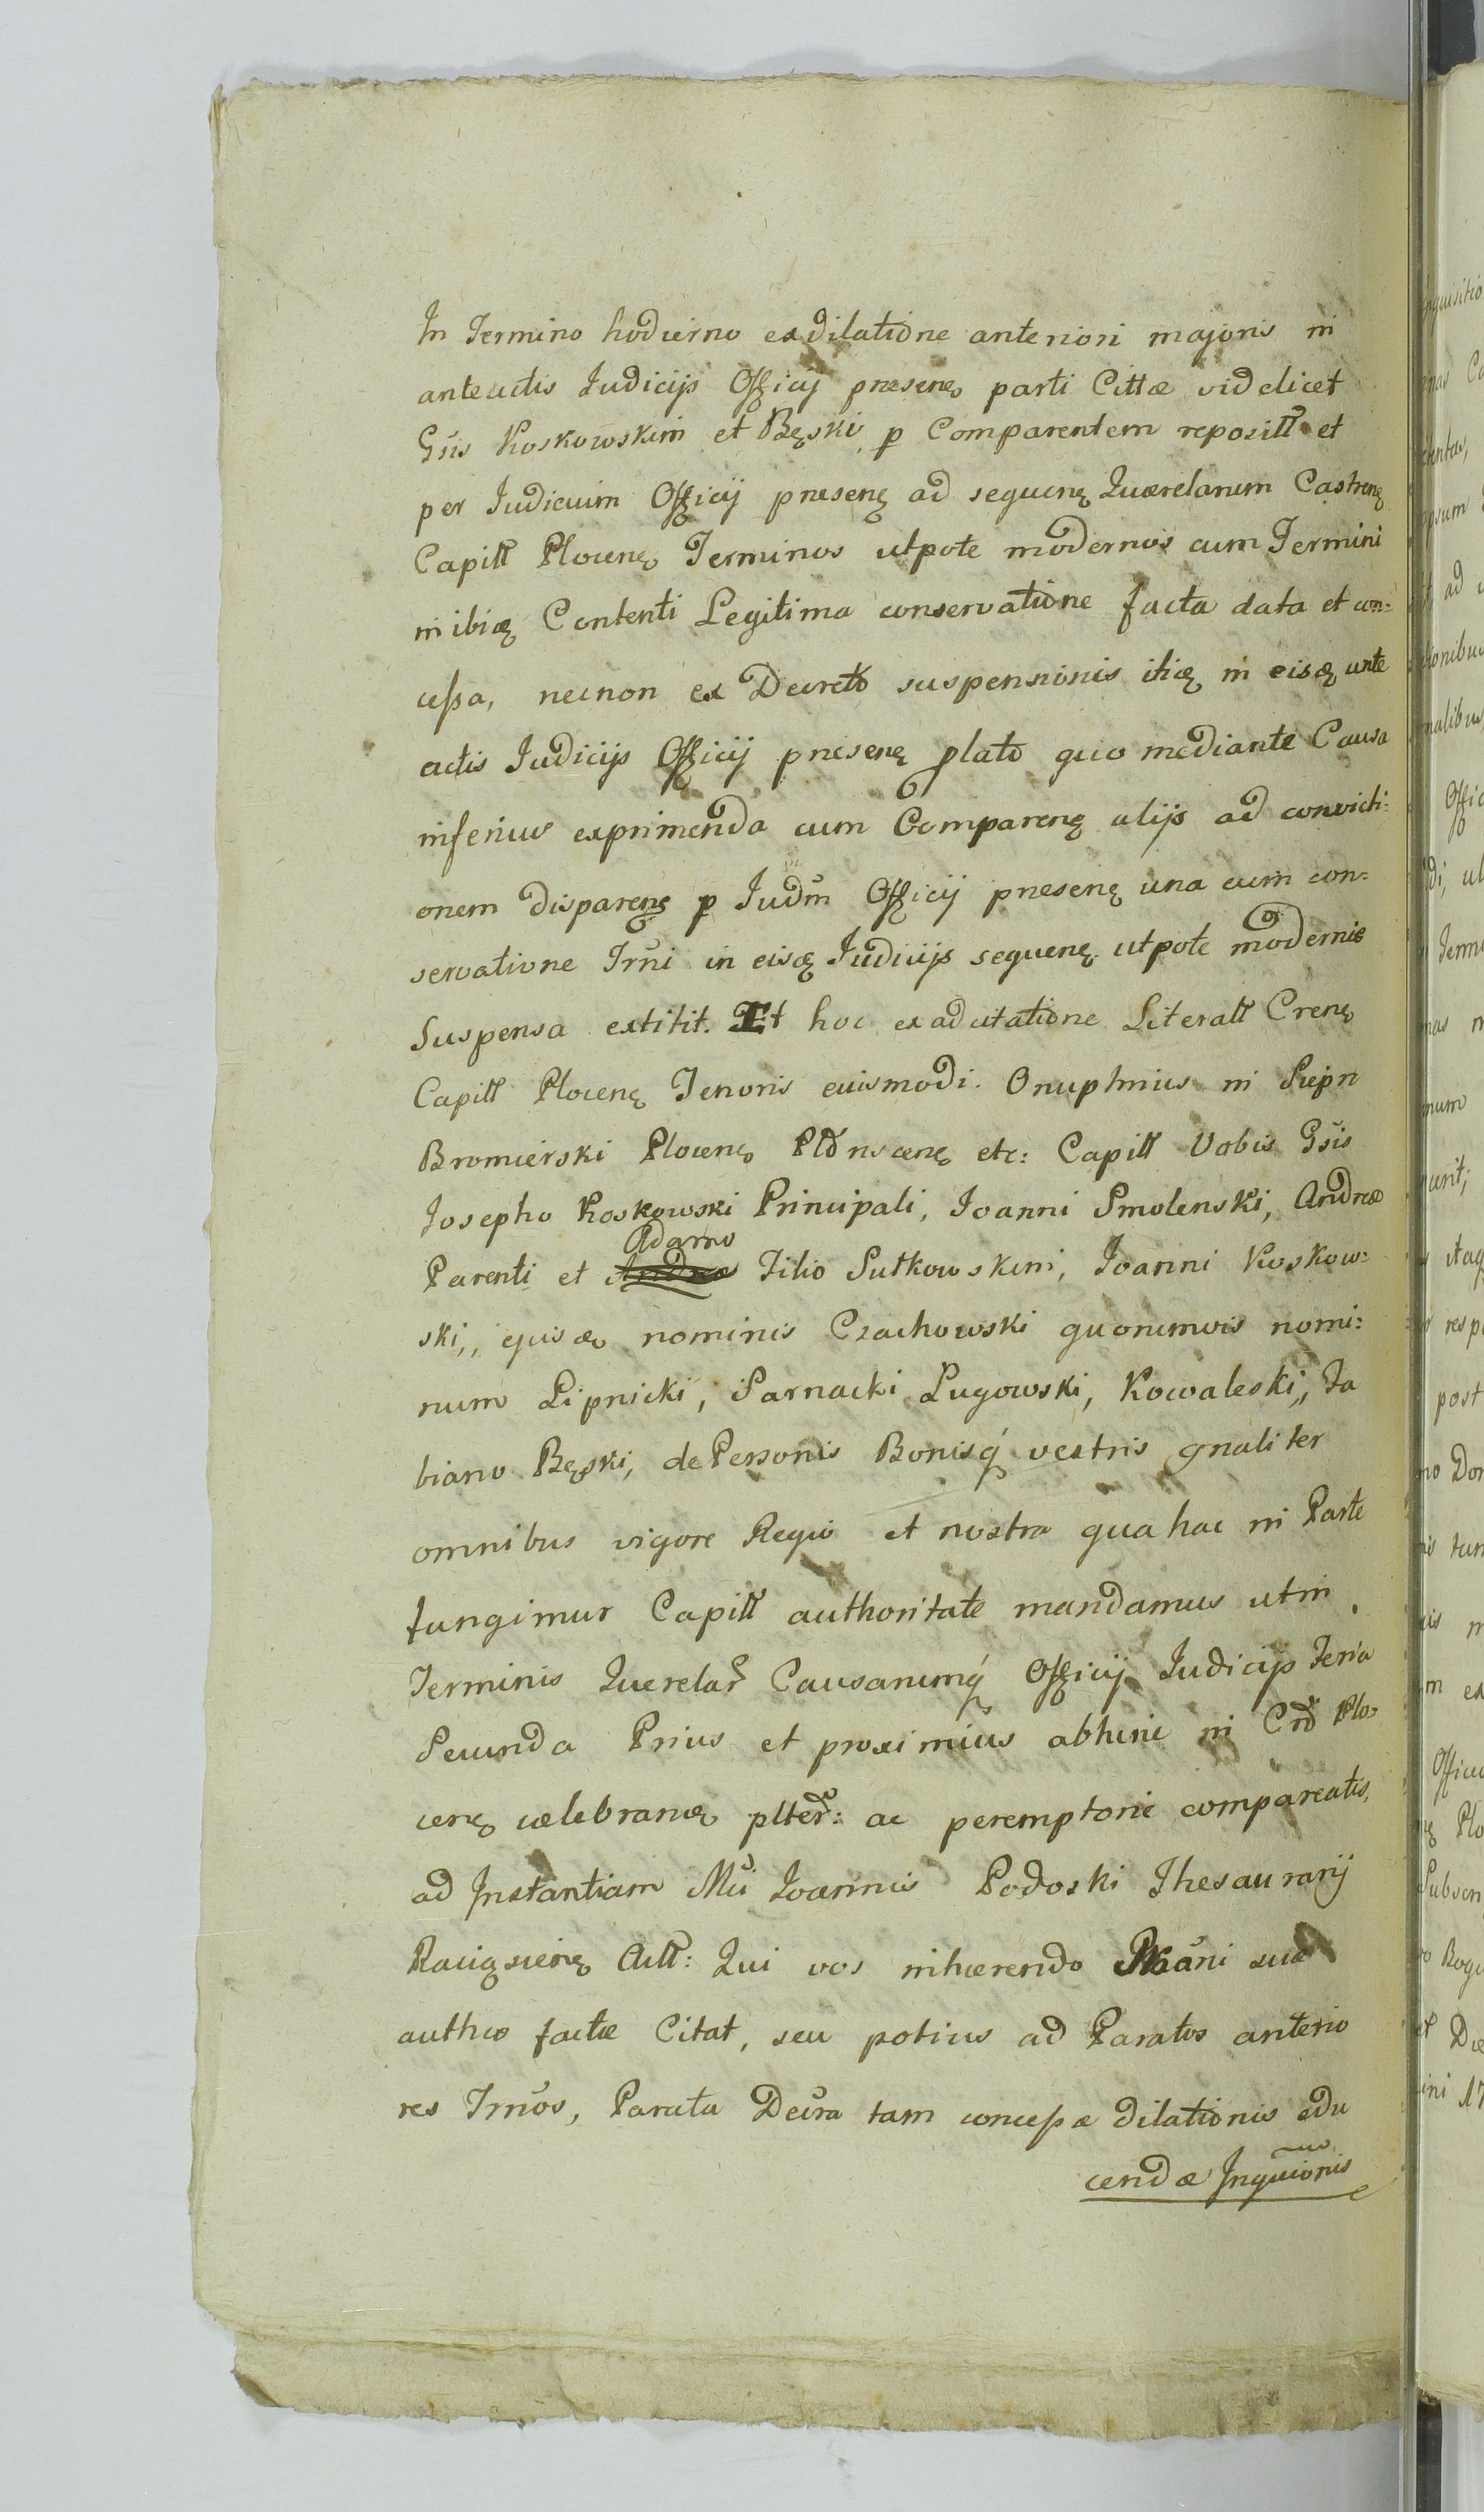 In Termino hodierno ex dilatione anteriori majoris in
anteactis Iudicijs Officij præsenę parti Cittæ videlicet
Gsis Koskowskim et Bęski p Comparentem reposill et
per Iudicium Officij præsenę ad sequenę Quærelarum Castrenę
Capitl Plocenę Terminos utpote modernos cum Termini
in ibię Contenti Legitima conservatione facta data et con=
cessa, necnon ex Decreto suspensionis itię in eisę ante
actis Iudicijs Officij præsenę plato quo mediante Causa
inferius exprimenda cum Comparenę alijs ad convicti=
onem disparenę p Iudm Officij præsenę una cum con=
servatione Trni in eisę Iudicijs sequenę utpote modernis
Suspensa extitit. Et hoc ex adcitatione Literall Crenę
Capitl Plocenę Tenoris eiusmodi. Onuphrius in Siepn
Bromierski Plocenę Płdnscenę etc: Capitl Vobis Gsis
Iosepho Koskowski Principali, Ioanni Smolenski, Andreæ
Adamo
Parenti et Andreæ Filio Sutkowskim, Ioanni Koskow=
ski,, ejusdę nominis Czachowski quorumvis nomi=
num Lipnicki, Sarnacki Ługowski, Kowaleski,, Fa
biano Bęski, de Personis Bonisq́ vestris gnaliter
omnibus vigore Regio et nostra qua hac in Parte
fungimur Capitl authoritate mandamus ut in
Terminis Querelar Causarumq́ Officij Iudicijs Feria
Secunda Prius et proximius abhinc in Crd Plo=
cenę cælebranę plter: ac peremptorie compareatis,
ad Instantiam Mci Ioannis Podoski Thesaurarij
Raciąscienę Actt: Qui vos inhærendo Maani suæ
authœ factæ Citat, seu potius ad Paratos anterio
res Trnos, Parata Decra tam concessæ dilationis edu
cendæ Inquionis